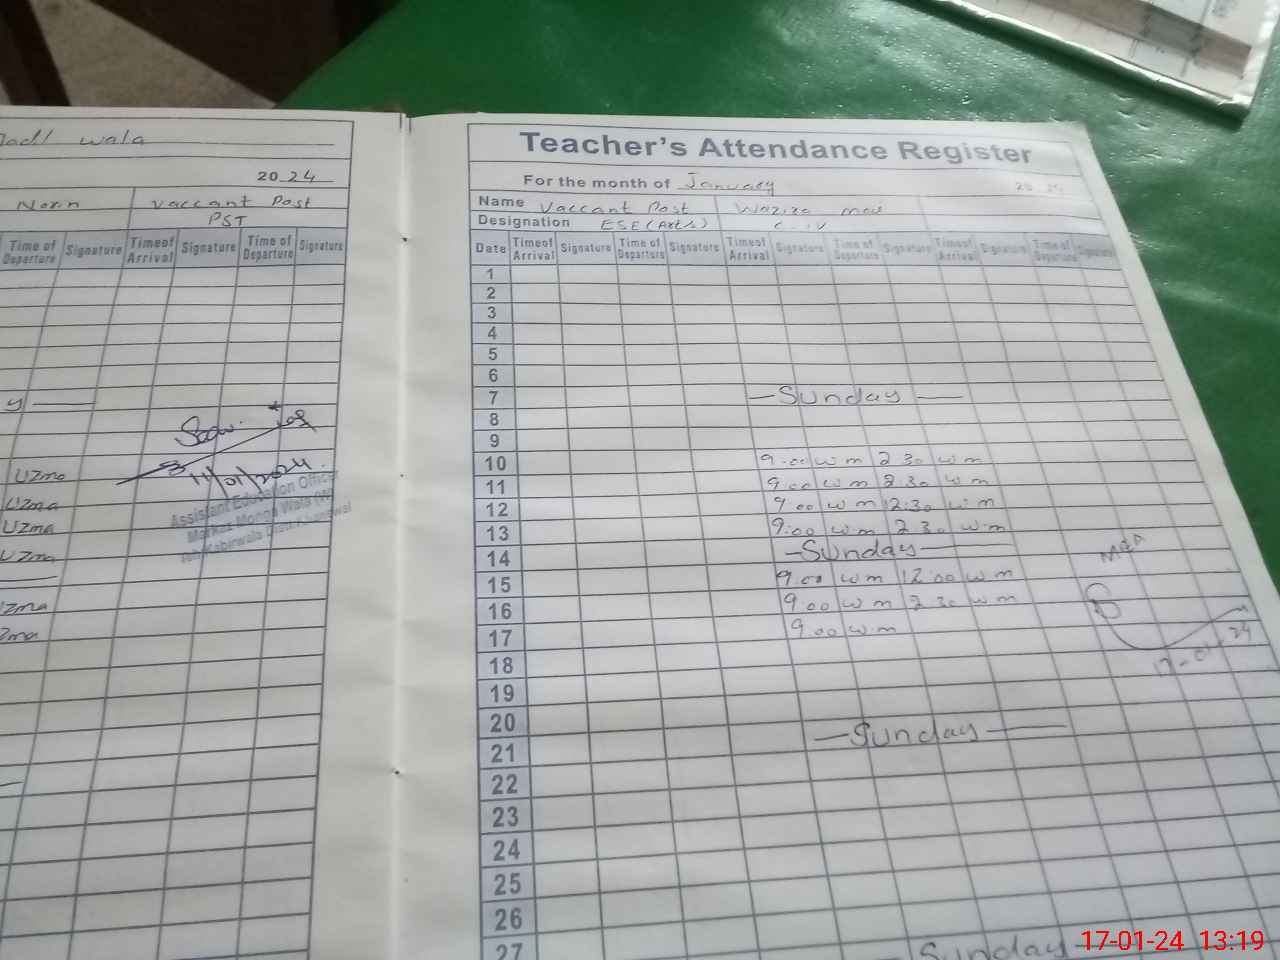 wala
20 24
Norin Vaccant Post
PST
Time of Departure Signature Time of Arrival Signature Time of Departure Signature
y
Uzma
Uzma
Uzma
Uzma
Uzma
Uzma
11/01/2024
Assistant Education Officer
Teacher's Attendance Register
For the month of January 20 24
Name Vaccant Post Wazira mai
Designation ESE (Arts) C-IV
Date Time of Arrival Signature Time of Departure Signature Time of Arrival Signature Time of Departure Signature Time of Arrival Signature Time of Departure Signature
1
2
3
4
5
6
7 — Sunday —
8
9
10 9:00 w m 2 30 w m
11 9 00 w m 2:30 w m
12 9 00 w m 2:30 w m
13 9:00 w m 2 30 w m
14 — Sunday —
15 9 00 w m 12 00 w m
16 9 00 w m 2 30 w m
17 9 00 w m
18
19
20
21 — Sunday —
22
23
24
25
26
27
Sunday
17-01-24
17-01-24 13:19